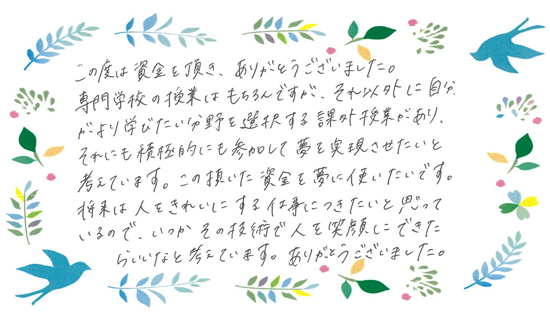 この度は資金を頂き、ありがとうございました。
専門学校の授業はもちろんですが、それ以外に自分
がより学びたい分野を選択する課外授業があり、
それにも積極的にも参加して夢を実現させたいと
考えています。この頂いた資金を夢に使いたいです。
将来は人をきれいにする仕事につきたいと思って
いるので、いつかその技術で人を笑顔にできた
らいいなと考えています。ありがとうございました。